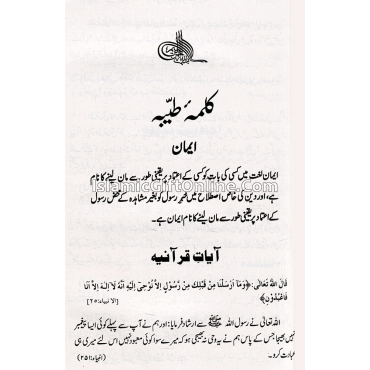 کلمۂ طیّبہ
ایمان
ایمان لغت میں کسی کی بات کو کسی کے اعتماد پر یقینی طور سے مان لینے کا نام
ہے، اور دین کی خاص اصطلاح میں خبرِ رسول کو بغیر مشاہدہ کے محض رسول
کے اعتماد پر یقینی طور سے مان لینے کا نام ایمان ہے۔
IslamicGiftOnline.com
آیاتِ قرآنیہ
قَالَ اللّٰهُ تَعَالٰى: ﴿وَمَآ اَرْسَلْنَا مِنْ قَبْلِكَ مِنْ رَّسُوْلٍ اِلَّا نُوْحِيْٓ اِلَيْهِ اَنَّهٗ لَآ اِلٰهَ اِلَّآ اَنَا
فَاعْبُدُوْنِ﴾ [الانبياء:٢٥]
اللہ تعالٰی نے رسول اللہ ﷺ سے ارشاد فرمایا: اور ہم نے آپ سے پہلے کوئی ایسا پیغمبر
نہیں بھیجا جس کے پاس ہم نے یہ وحی نہ بھیجی ہو کہ میرے سوا کوئی معبود نہیں اس لئے میری ہی
عبادت کرو۔ (انبیاء:۲۵)